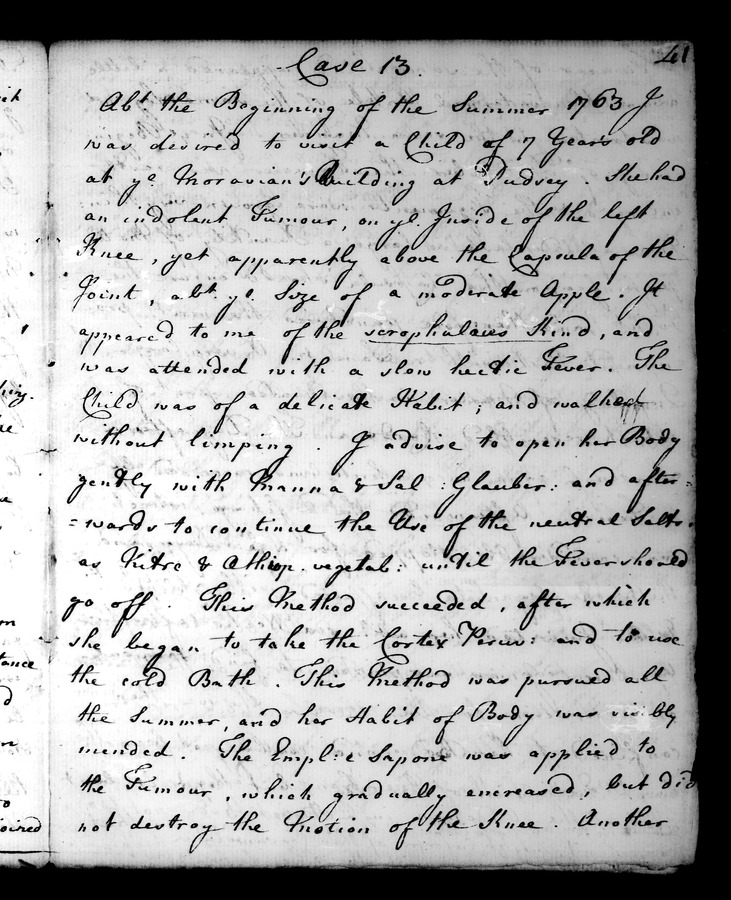 41
Case 13.
Abt. the Beginning of the Summer 1763 I
was desired to visit a Child of 7 Years old
at ye. Moravian's Building at Pudsey. She had
an indolent Tumour, on ye. Inside of the left
Knee, yet apparently above the Capsula of the
Joint, abt. ye. Size of a moderate Apple. It
appeared to me of the scrophulous Kind, and
was attended with a slow hectic Fever. The
Child was of a delicate Habit; and walked
without limping. I advise to open her Body
gently with Manna & Sal: Glauber: and after=
=wards to continue the Use of the neutral Salts.
as Nitre & Æthiop. vegetab: until the Fever should
go off. This Method succeeded, after which
she began to take the Cortex Peruv: and to use
the cold Bath. This Method was pursued all
the Summer, and her Habit of Body was visibly
mended. The Empl: e Sapone was applied to
the Tumour, which gradually encreased, but did
not destroy the Motion of the Knee. Another